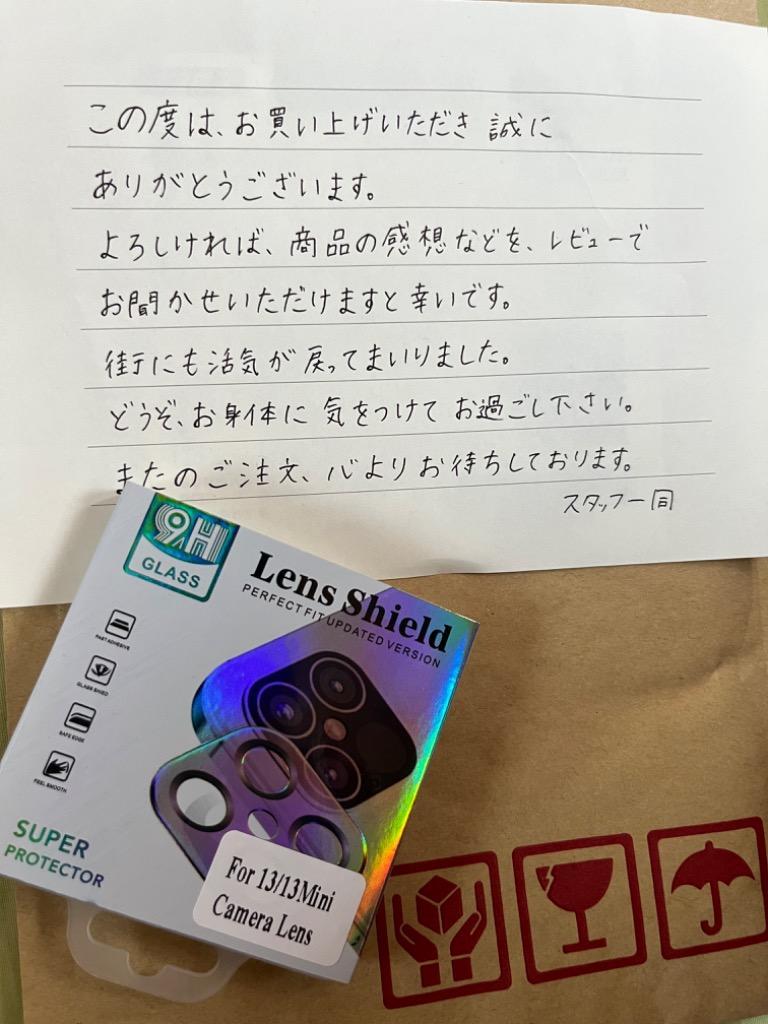 この度は、お買い上げいただき 誠に
ありがとうございます。
よろしければ、商品の感想などを、レビューで
お聞かせいただけますと幸いです。
街にも活気が戻ってまいりました。
どうぞ、お身体に 気をつけて お過ごし下さい。
またのご注文、心よりお待ちしております。
スタッフ一同
9H
GLASS
Lens Shield
PERFECT FIT UPDATED VERSION
FAST ADHESIVE
GLASS SHIED
SAFE EDGE
FEEL SMOOTH
SUPER
PROTECTOR
For 13/13Mini
Camera Lens